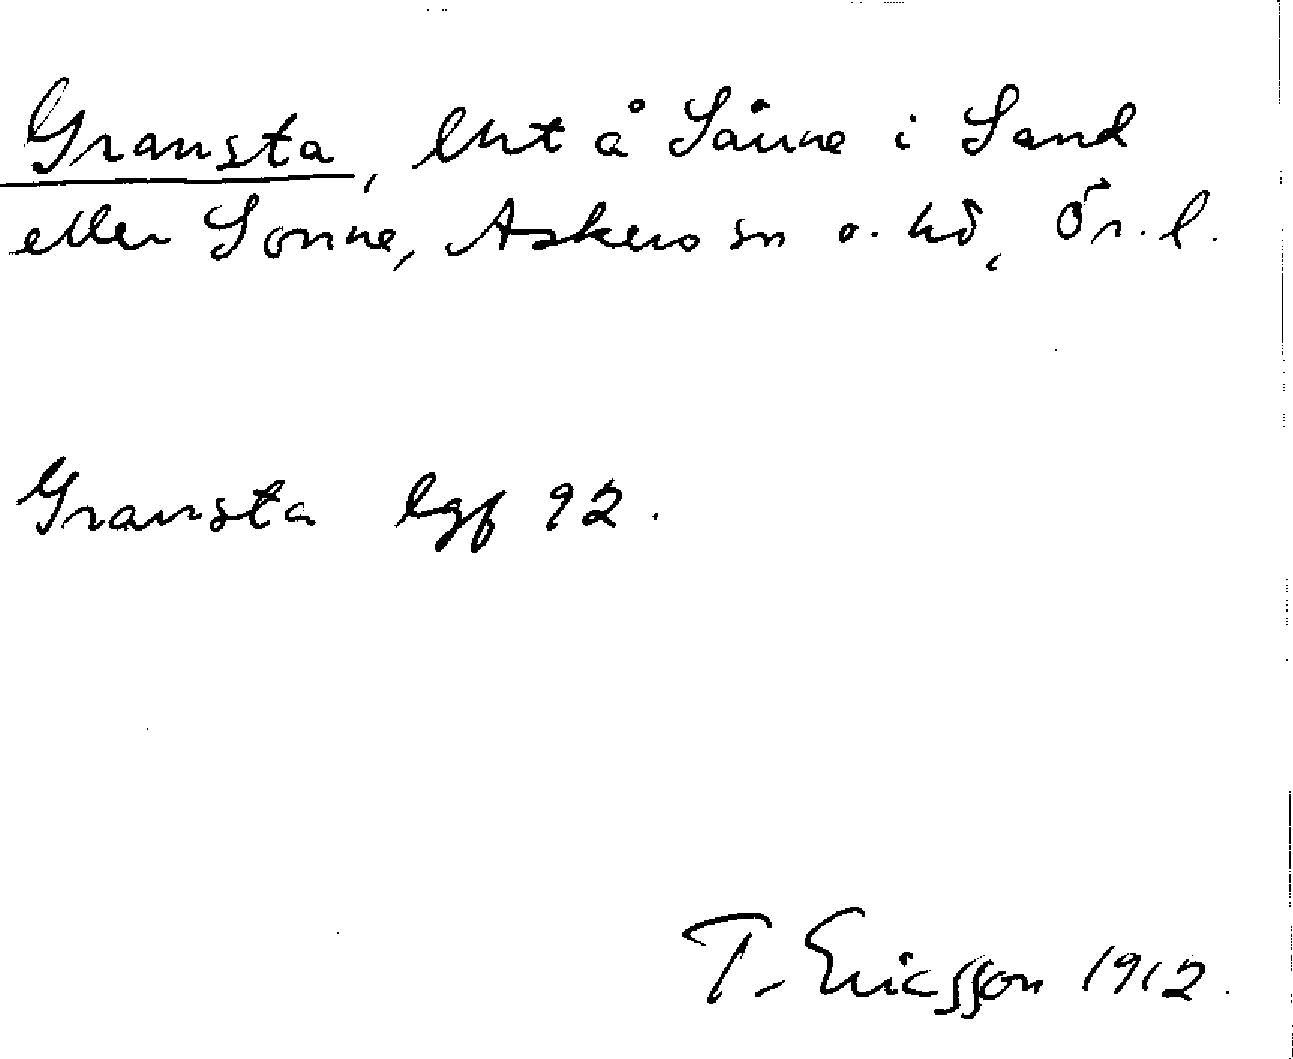 Gransta, lht å Sånne i Sand
eller Sonne, Askers sn o. hd, Ör. l.
Gransta lgf 92.
T. Ericsson 1912.